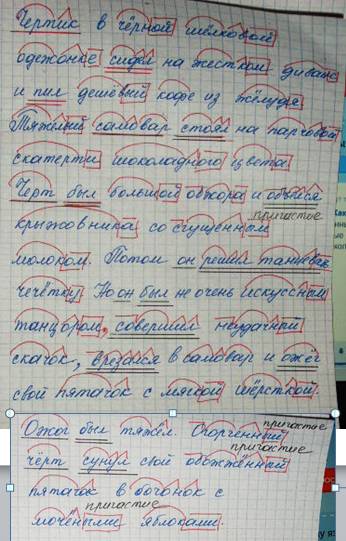 Чертик в чёрной шёлковой
одежонке сидел на жестком диване
и пил дешёвый кофе из жёлудя.
Тяжёлый самовар стоял на парчовой
скатерти шоколадного цвета.
Черт был большой обжора и объелся
крыжовника со сгущенным
причастие
молоком. Потом он решил танцевать
чечётку. Но он был не очень искусным
танцором, совершил неудачный
скачок, врезался в самовар и ожёг
свой пятачок с мягкой шёрсткой.
причастие
Ожог был тяжёл. Огорченный
причастие
чёрт сунул свой обожжённый
пятачок в бочонок с
причастие
мочёными яблоками.